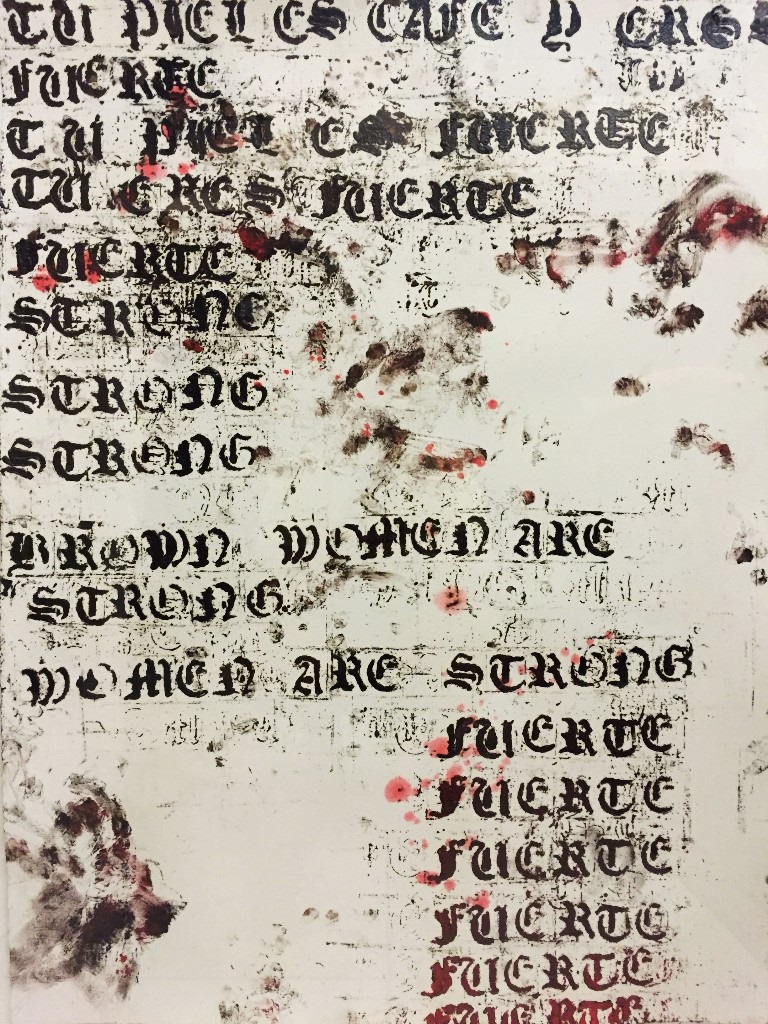 TU PIEL ES CAFE Y ERES
FUERTE
TU PIEL ES FUERTE
TU ERES FUERTE
FUERTE
STRONG
STRONG
STRONG
BROWN WOMEN ARE
STRONG
WOMEN ARE STRONG
FUERTE
FUERTE
FUERTE
FUERTE
FUERTE
FUERTE